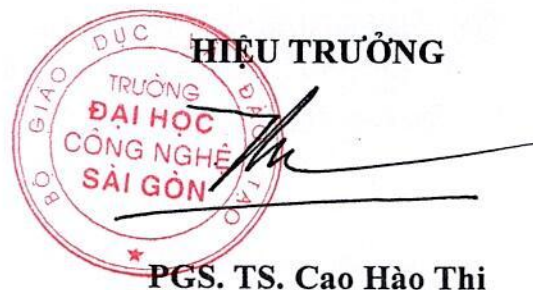 HIỆU TRƯỞNG
BỘ GIÁO DỤC ĐÀO TẠO
TRƯỜNG
ĐẠI HỌC
CÔNG NGHỆ
SÀI GÒN
PGS. TS. Cao Hào Thi